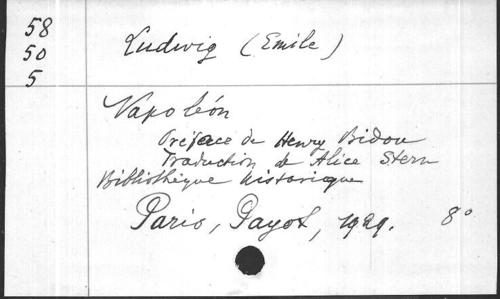 58
50
5
Ludwig (Emile)
Napoléon
Préface de Henry Bidou
Traduction de Alice Stern
Bibliothèque historique
Paris, Payot, 1929. 8°